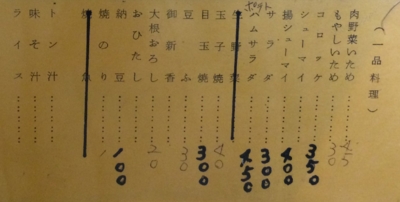 (一品料理)
肉野菜いため……45
もやしいため……30
コロッケ……
シューマイ……350
揚シューマイ……400
サラダ……300
ポテト
ハムサラダ……450
生野菜
玉子焼……40
目玉焼……300
豆ふ……30
御新香……
大根おろし……20
おひたし……
納豆……100
焼のり……
焼魚
トン汁……
味そ汁……
ライス……